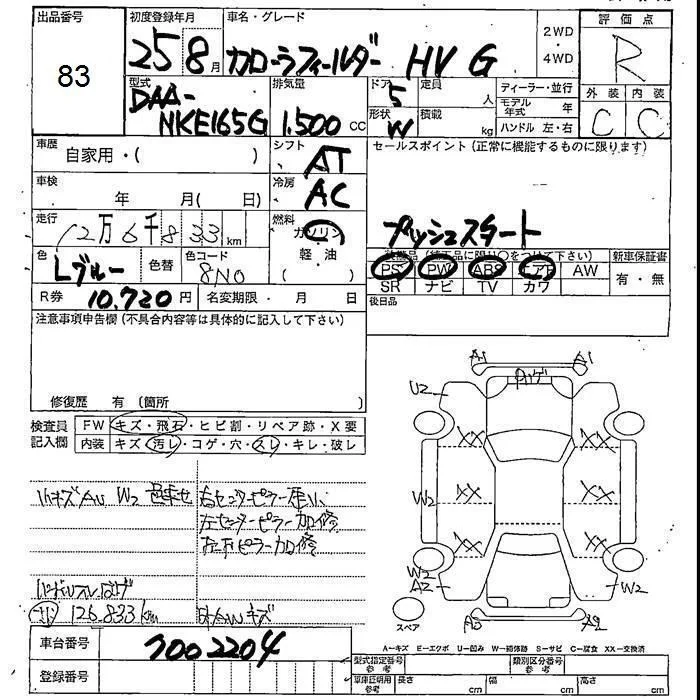 出品番号
83
初度登録年月
25 8月
車名・グレード
カローラフィールダー HV G
2WD
・
4WD
評価点
R
型式
DAA-
NKE165G
排気量
1.500 cc
ドア
5
形状
W
定員
人
積載
kg
ディーラー・並行
モデル年式 年
ハンドル 左・右
外装 内装
C C
車歴
自家用・( )
シフト
AT
セールスポイント(正常に機能するものに限ります)
プッシュスタート
車検
年 月( 日)
冷房
AC
走行
12万6千833km
燃料
ガソリン
軽・油
色
Lブルー
色替
色コード
8N0
装備品
新車保証書
有・無
PS PW ABS エアB AW
SR ナビ TV カワ
R券 10,720円
名変期限・ 月 日
後日品
注意事項申告欄(不具合内容等は具体的に記入して下さい)
修復歴 有(箇所
検査員
記入欄
FW キズ・飛石・ヒビ割・リペア跡・X要
内装 キズ・汚レ・コゲ・穴・スレ・キレ・破レ
小キズAU W2 色アセ
右センターピラー
左センターピラー加修
左下ピラー加修
126.833km
AWキズ
A1 A1
ハゲ
U2
XX XX
W2 XX XX
XX XX
W2
A2
W2
スペア
A2
A-キズ E-エクボ U-凹み W-補修跡 S-サビ C-腐食 XX-交換済
車台番号
7002204
登録番号
型式指定番号
参考
類別区分番号
参考
車庫証明用
参考
長さ cm
幅 cm
高さ cm